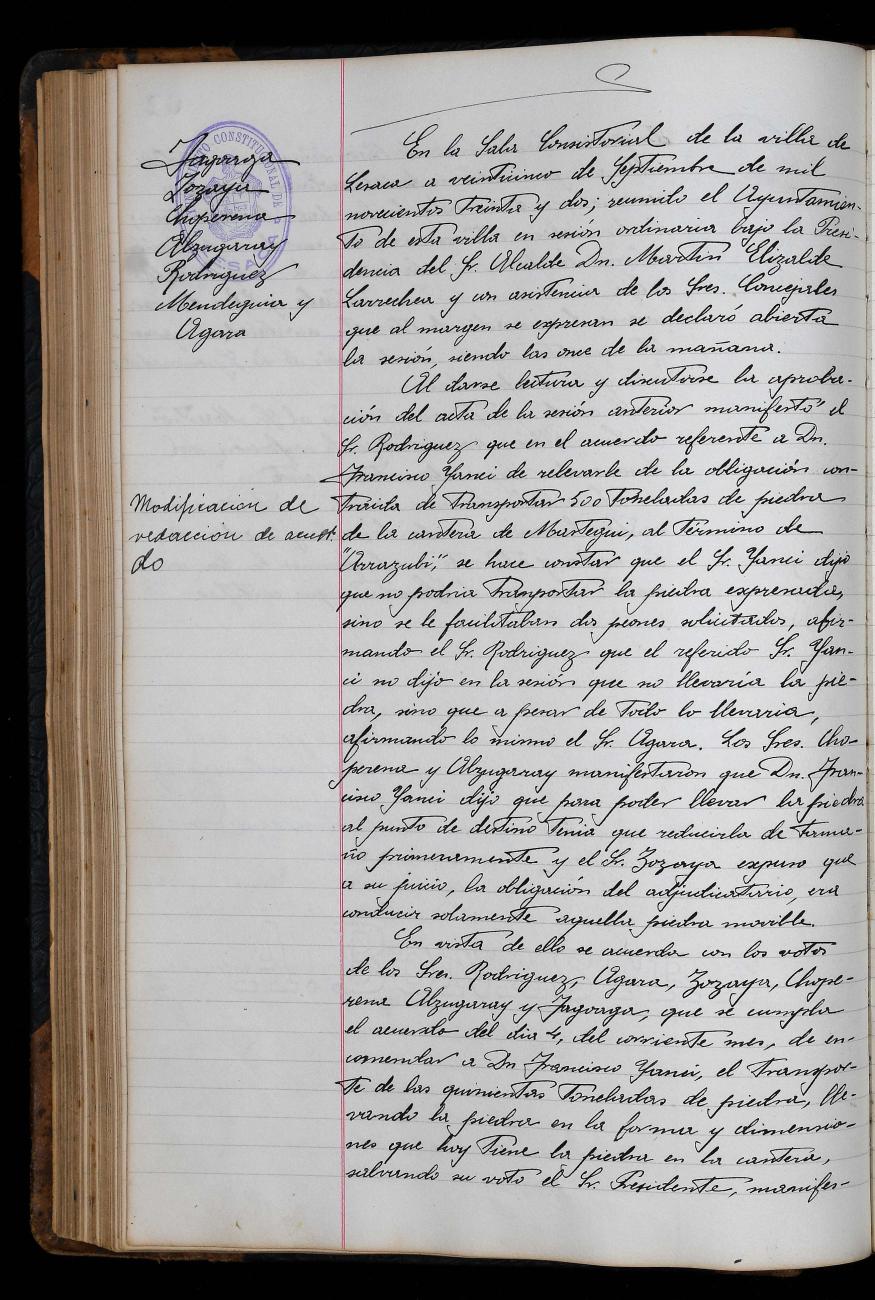 AYUNTAMIENTO CONSTITUCIONAL DE
LESACA
Jagoaga
Zozaya
Choperena
Alzugaray
Rodriguez
Mendeguia y
Agara
En la Sala Consistorial de la villa de
Lesaca a veinticinco de Septiembre de mil
novecientos treinta y dos; reunido el Ayuntamien-
to de esta villa en sesión ordinaria bajo la Presi-
dencia del Sr. Alcalde Dn. Martin Elizalde
Larrechea y con asistencia de los Sres. Concejales
que al margen se expresan se declaró abierta
la sesión, siendo las once de la mañana.
Al darse lectura y discutirse la aproba-
ción del acta de la sesión anterior manifestó el
Sr. Rodriguez que en el acuerdo referente a Dn.
Francisco Yanci de relevarle de la obligación con-
traida de transportar 500 toneladas de piedra
de la cantera de Mastegui, al término de
"Arrazubi", se hace constar que el Sr. Yanci dijo
que no podria transportar la piedra expresada,
sino se le facilitaban dos peones solicitados, afir-
mando el Sr. Rodriguez que el referido Sr. Yan-
ci no dijo en la sesión que no llevaría la pie-
dra, sino que a pesar de todo lo llevaria,
afirmando lo mismo el Sr. Agara. Los Sres. Cho-
perena y Alzugaray manifestaron que Dn. Fran-
cisco Yanci dijo que para poder llevar la piedra
al punto de destino tenia que reducirla de tama-
ño primeramente y el Sr. Zozaya expuso que
a su juicio, la obligación del adjudicatario, era
conducir solamente aquella piedra movible.
En vista de ello se acuerda con los votos
de los Sres. Rodriguez, Agara, Zozaya, Chope-
rena Alzugaray y Jagoaga, que se cumpla
el acuerdo del dia 4, del corriente mes, de en-
comendar a Dn Francisco Yanci, el transpor-
te de las quinientas toneladas de piedra, lle-
vando la piedra en la forma y dimensio-
nes que hoy tiene la piedra en la cantera,
salvando su voto el Sr. Presidente, manifes-
Modificación de
redacción de acuer
do